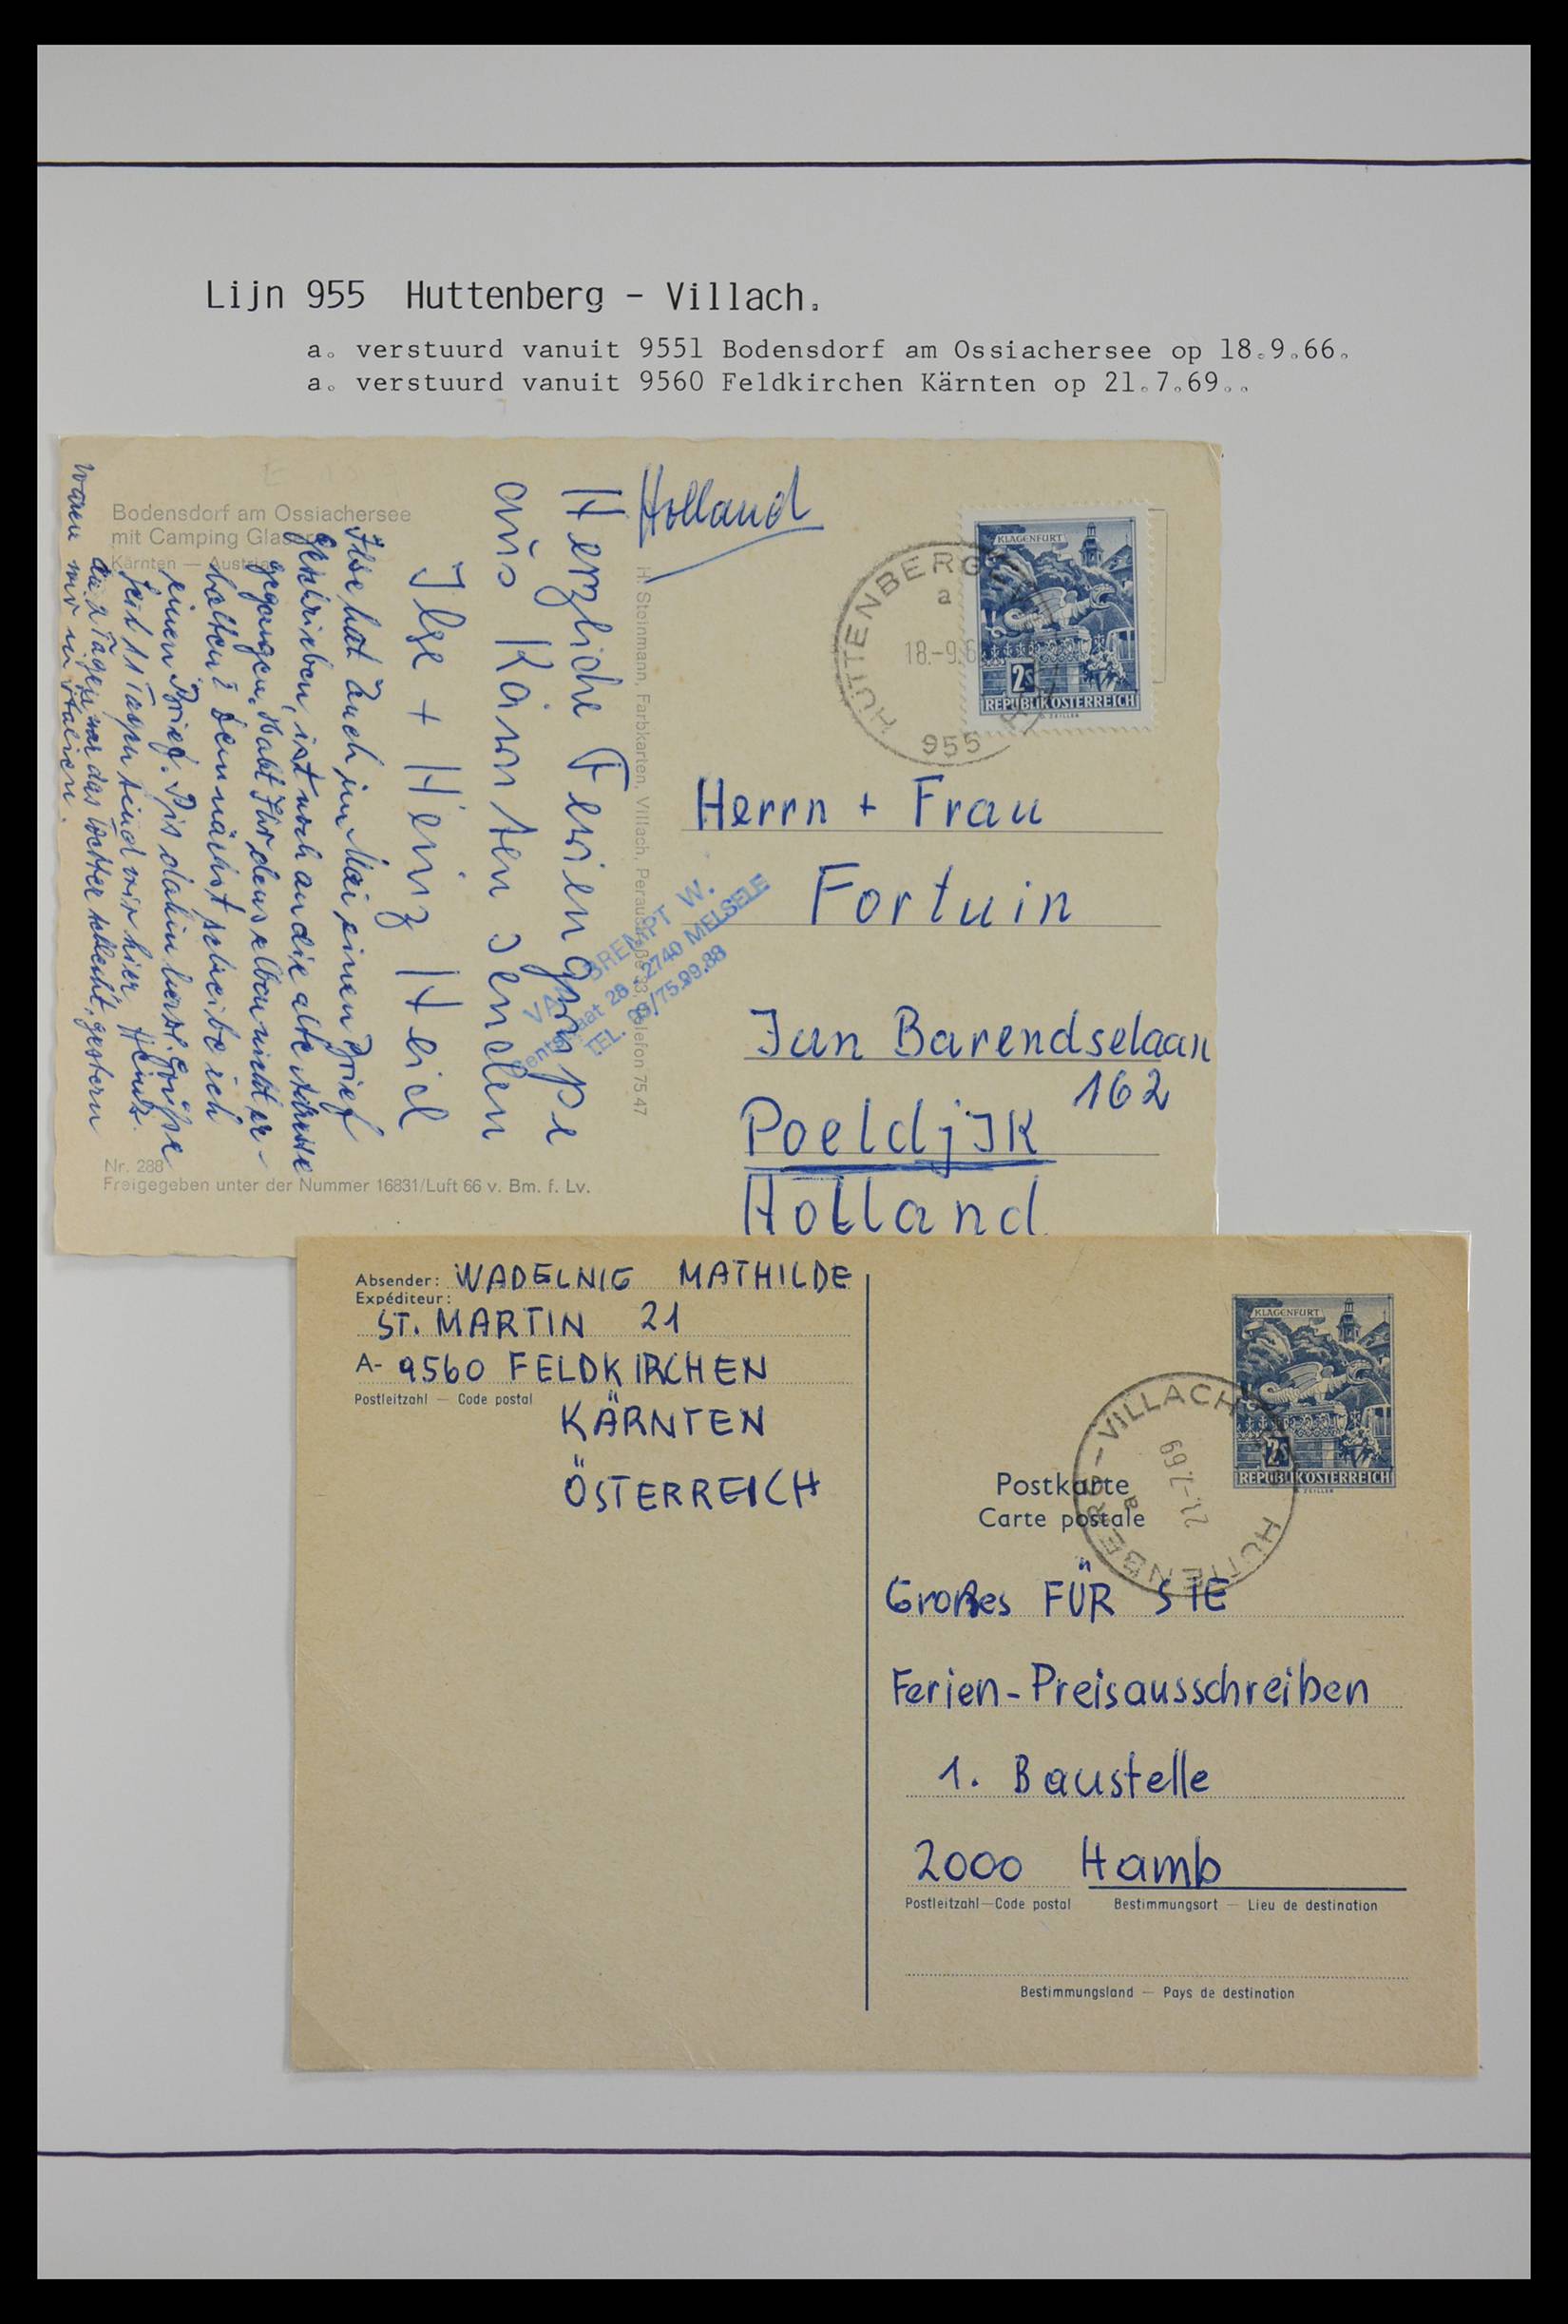 Lijn 955 Huttenberg - Villach.
a. verstuurd vanuit 9551 Bodensdorf am Ossiachersee op 18.9.66.
a. verstuurd vanuit 9560 Feldkirchen Kärnten op 21.7.69..
Bodensdorf am Ossiachersee
mit Camping Glaser
Kärnten — Austria
Holland
Herzliche Feriengrüße
aus Kärnten senden
Ilse + Heinz Heid
Ilse hat Euch im Mai einen Brief
geschrieben, ist noch an die alte Adresse
gegangen, Habt Ihr denselben nicht er-
halten? Demnächst schreibe ich
einen Brief. Bis dahin herzl. Grüße
Heinz.
Seit 11 Tagen sind wir hier
die 2 Tage war das Wetter schlecht, gestern
waren wir in Italien.
H. Steinmann, Farbkarten, Villach, Telefon 75 47
BREMPT W.
28 - 2740 MELSELE
TEL. 03/75.99.88
Nr. 288
Freigegeben unter der Nummer 16831/Luft 66 v. Bm. f. Lv.
KLAGENFURT
2S
REPUBLIK ÖSTERREICH
HÜTTENBERG
a
18.-9.6
955
Herrn + Frau
Fortuin
Jan Barendselaan
162
PoeldijK
Holland
Absender: WADELNIG MATHILDE
Expéditeur:
ST. MARTIN 21
A- 9560 FELDKIRCHEN
Postleitzahl — Code postal
KÄRNTEN
ÖSTERREICH
KLAGENFURT
2S
REPUBLIK ÖSTERREICH
HÜTTENBERG - VILLACH
a
21.-7.69
HÜTTENBERG
Postkarte
Carte postale
Großes FÜR SIE
Ferien-Preisausschreiben
1. Baustelle
2000 Hamb
Postleitzahl—Code postal Bestimmungsort — Lieu de destination
Bestimmungsland — Pays de destination